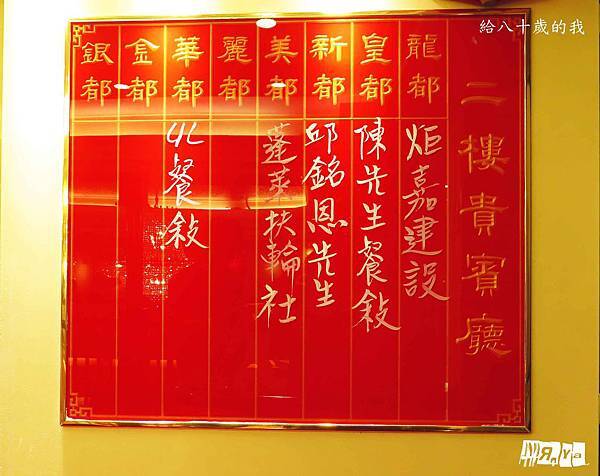 給八十歲的我
二樓貴賓廳
龍都 炬嘉建設
皇都 陳先生餐敍
新都 邱銘恩先生
美都 蓬萊扶輪社
麗都
華都 4L餐敍
金都
銀都